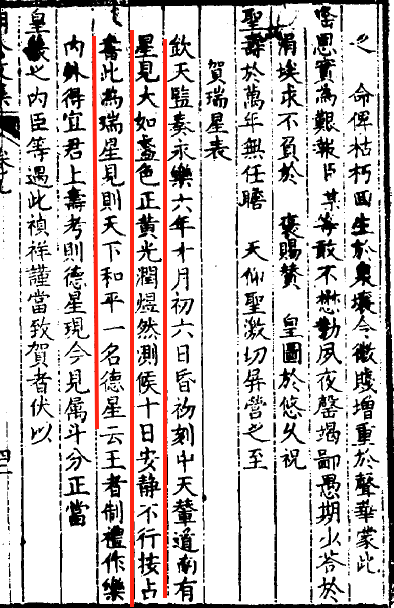 之 命俾枯朽回生於泉壤令微賤增重於聲華蒙此
密恩實為艱報臣某等敢不懋勤夙夜罄竭鄙愚期少答於
涓埃求不負於 褒賜贊 皇圖於悠久祝
聖壽於萬年無任瞻 天仰聖激切屏營之至
賀瑞星表
欽天監奏永樂六年十月初六日昏初刻中天輦道南有
星見大如盞色正黃光潤煜然測候十日安靜不行按占
書此為瑞星見則天下和平一名德星云王者制禮作樂
內外得宜君上壽考則德星現今見属斗分正當
皇 之內臣等遇此禎祥謹當致賀者伏以